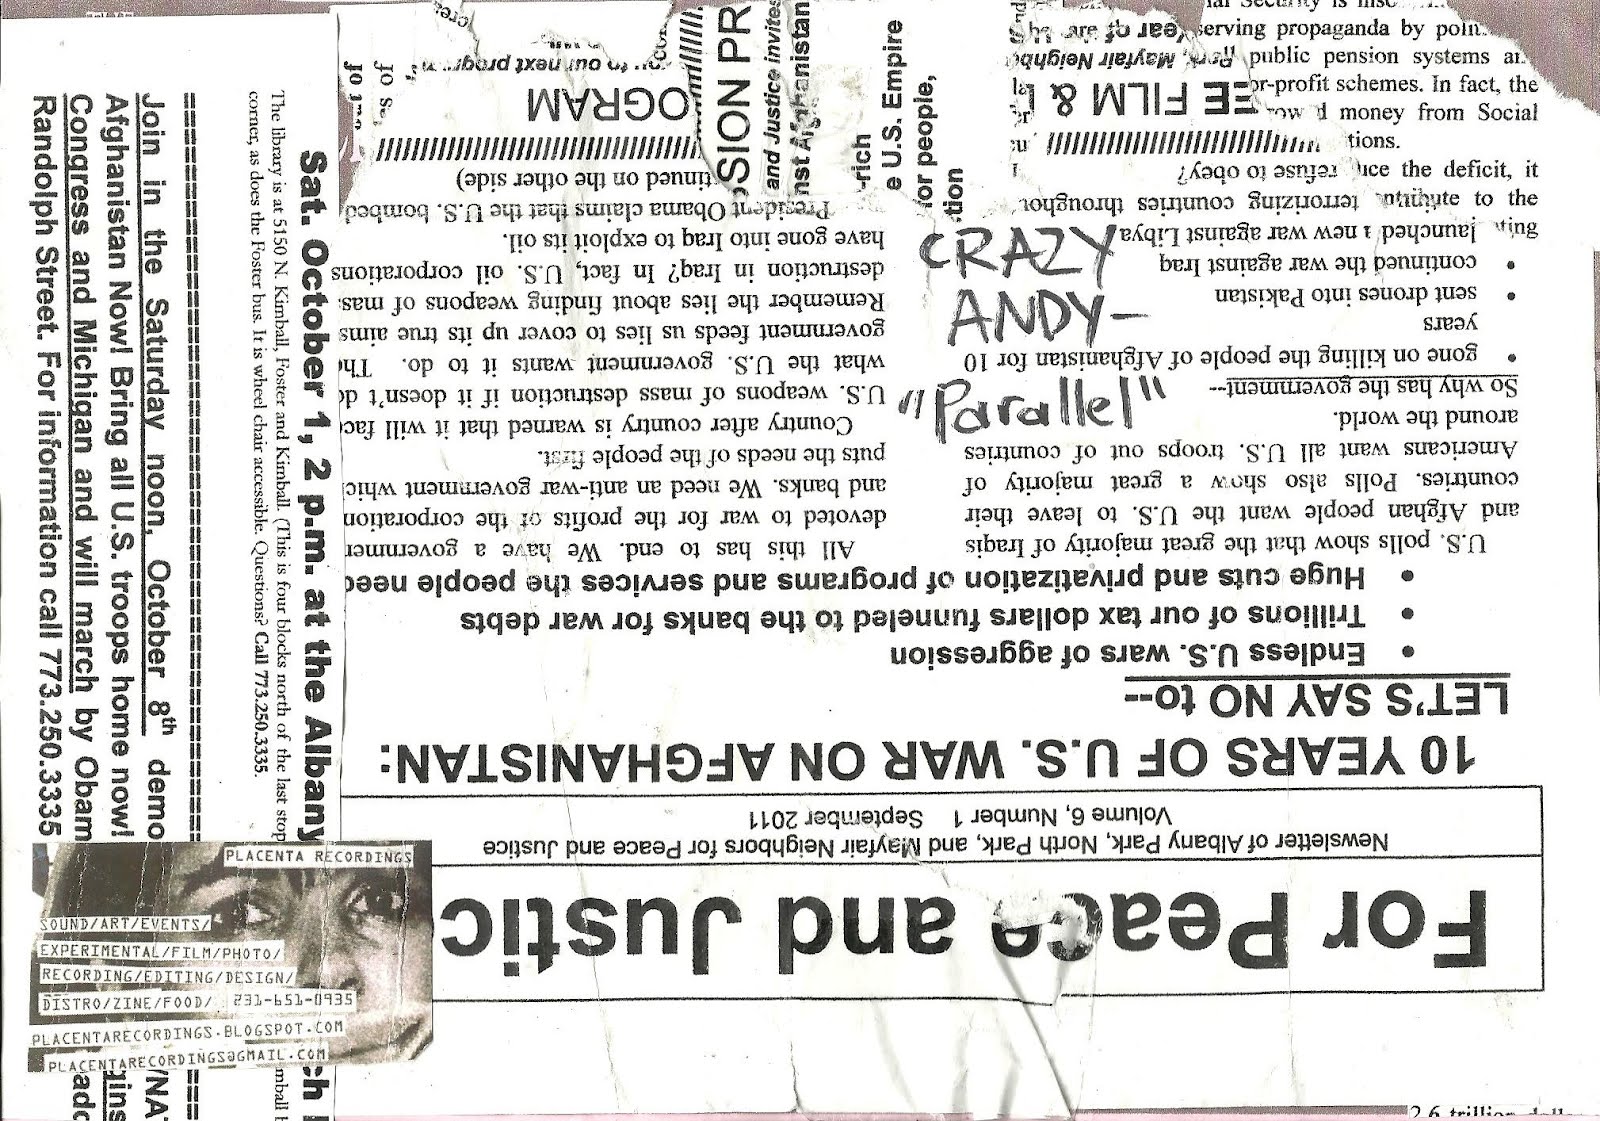 CRAZY
ANDY-
"Parallel"
For Peace and Justic
Newsletter of Albany Park, North Park, and Mayfair Neighbors for Peace and Justice
Volume 6, Number 1 September 2011
10 YEARS OF U.S. WAR ON AFGHANISTAN:
LET'S SAY NO to--
• Endless U.S. wars of aggression
• Trillions of our tax dollars funneled to the banks for war debts
• Huge cuts and privatization of programs and services the people need
U.S. polls show that the great majority of Iraqis
and Afghan people want the U.S. to leave their
countries. Polls also show a great majority of
Americans want all U.S. troops out of countries
around the world.
So why has the government--
• gone on killing the people of Afghanistan for 10
years
• sent drones into Pakistan
• continued the war against Iraq
launched a new war against Libya
terrorizing countries throughou
refuse to obey?
////////////////////////////////
EE FILM &
Park, Mayfair Neighbo
Year of
All this has to end. We have a governmen
devoted to war for the profits of the corporation
and banks. We need an anti-war government whic
puts the needs of the people first.
Country after country is warned that it will face
U.S. weapons of mass destruction if it doesn't do
what the U.S. government wants it to do. The
government feeds us lies to cover up its true aims
Remember the lies about finding weapons of mass
destruction in Iraq? In fact, U.S. oil corporations
have gone into Iraq to exploit its oil.
President Obama claims that the U.S. bombed
tinued on the other side)
////////////////////////////////
OGRAM
you to our next progr
SSION PR
and Justice invites
nst Afghanistan
-rich
e U.S. Empire
for people,
tion
al Security is
serving propaganda by
public pension systems
or-profit schemes. In fact, the
money from Social
tions.
uce the deficit, it
to the
ting
Sat. October 1, 2 p.m. at the Albany
The library is at 5150 N. Kimball, Foster and Kimball. (This is four blocks north of the last stop
corner, as does the Foster bus. It is wheel chair accessible. Questions? Call 773.250.3335.
mball
================================
Join in the Saturday noon, October 8th demo
Afghanistan Now! Bring all U.S. troops home now!
Congress and Michigan and will march by Obam
Randolph Street. For information call 773.250.3335
PLACENTA RECORDINGS
SOUND/ART/EVENTS/
EXPERIMENTAL/FILM/PHOTO/
RECORDING/EDITING/DESIGN/
DISTRO/ZINE/FOOD/ 231-651-0935
PLACENTARECORDINGS.BLOGSPOT.COM
PLACENTARECORDINGS@GMAIL.COM
/NA
ains
adc
2.6 trillion